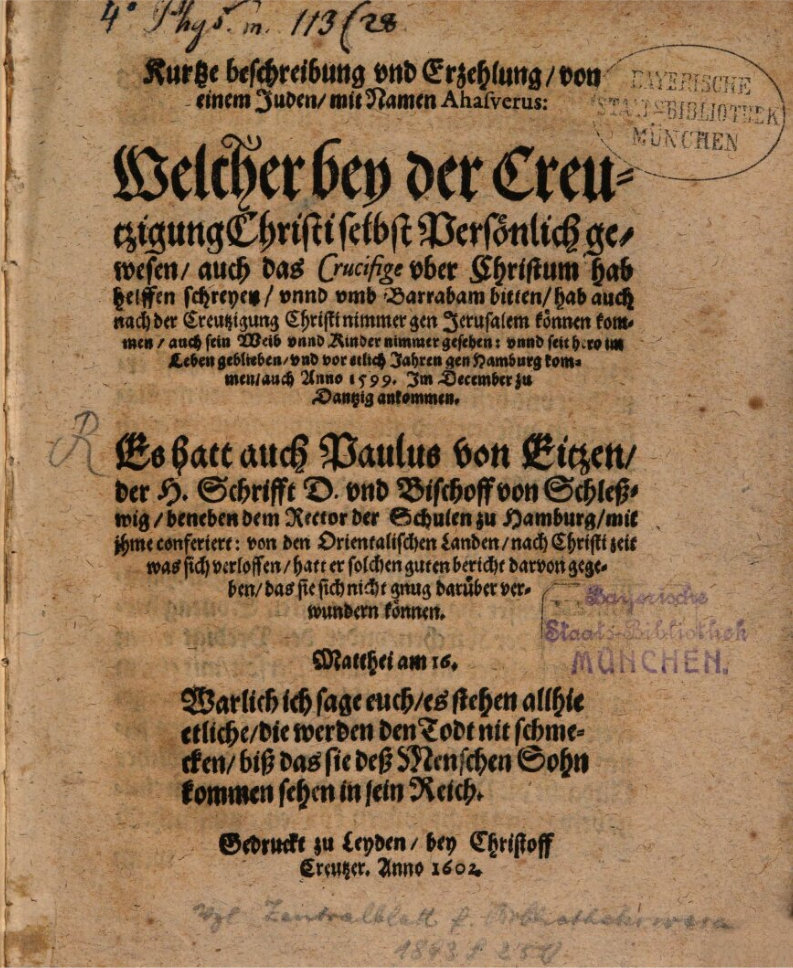 4° Phys. m. 113 (28
Kurtze beschreibung vnd Erzehlung/ von
einem Juden/ mit Namen Ahasverus:
BAYERISCHE
STAATSBIBLIOTHEK
MÜNCHEN
Welcher bey der Creu-
tzigung Christi selbst Persönlich ge-
wesen/ auch das Crucifige vber Christum hab
helffen schreyen/ vnnd vmb Barrabam bitten/ hab auch
nach der Creutzigung Christi nimmer gen Jerusalem können kom-
men/ auch sein Weib vnnd Kinder nimmer gesehen: vnnd seit hero im
Leben geblieben/ vnd vor etlich Jahren gen Hamburg kom-
men/ auch Anno 1599. Im December zu
Dantzig ankommen.
R
Es hatt auch Paulus von Eitzen/
der H. Schrifft D. vnd Bischoff von Schleß-
wig/ beneben dem Rector der Schulen zu Hamburg/ mit
jhme conferiert: von den Orientalischen Landen/ nach Christi zeit
was sich verloffen/ hatt er solchen guten bericht darvon gege-
ben/ das sie sich nicht gnug darüber ver-
wundern können.
Bayerische
Staats-Bibliothek
MÜNCHEN.
Matthei am 16.
Warlich ich sage euch/ es stehen allhie
etliche/ die werden den Todt nit schme-
cken/ biß das sie deß Menschen Sohn
kommen sehen in sein Reich.
Gedruckt zu Leyden/ bey Christoff
Creutzer. Anno 1602.
Vgl. Zentralblatt f. Bibliothekswesen